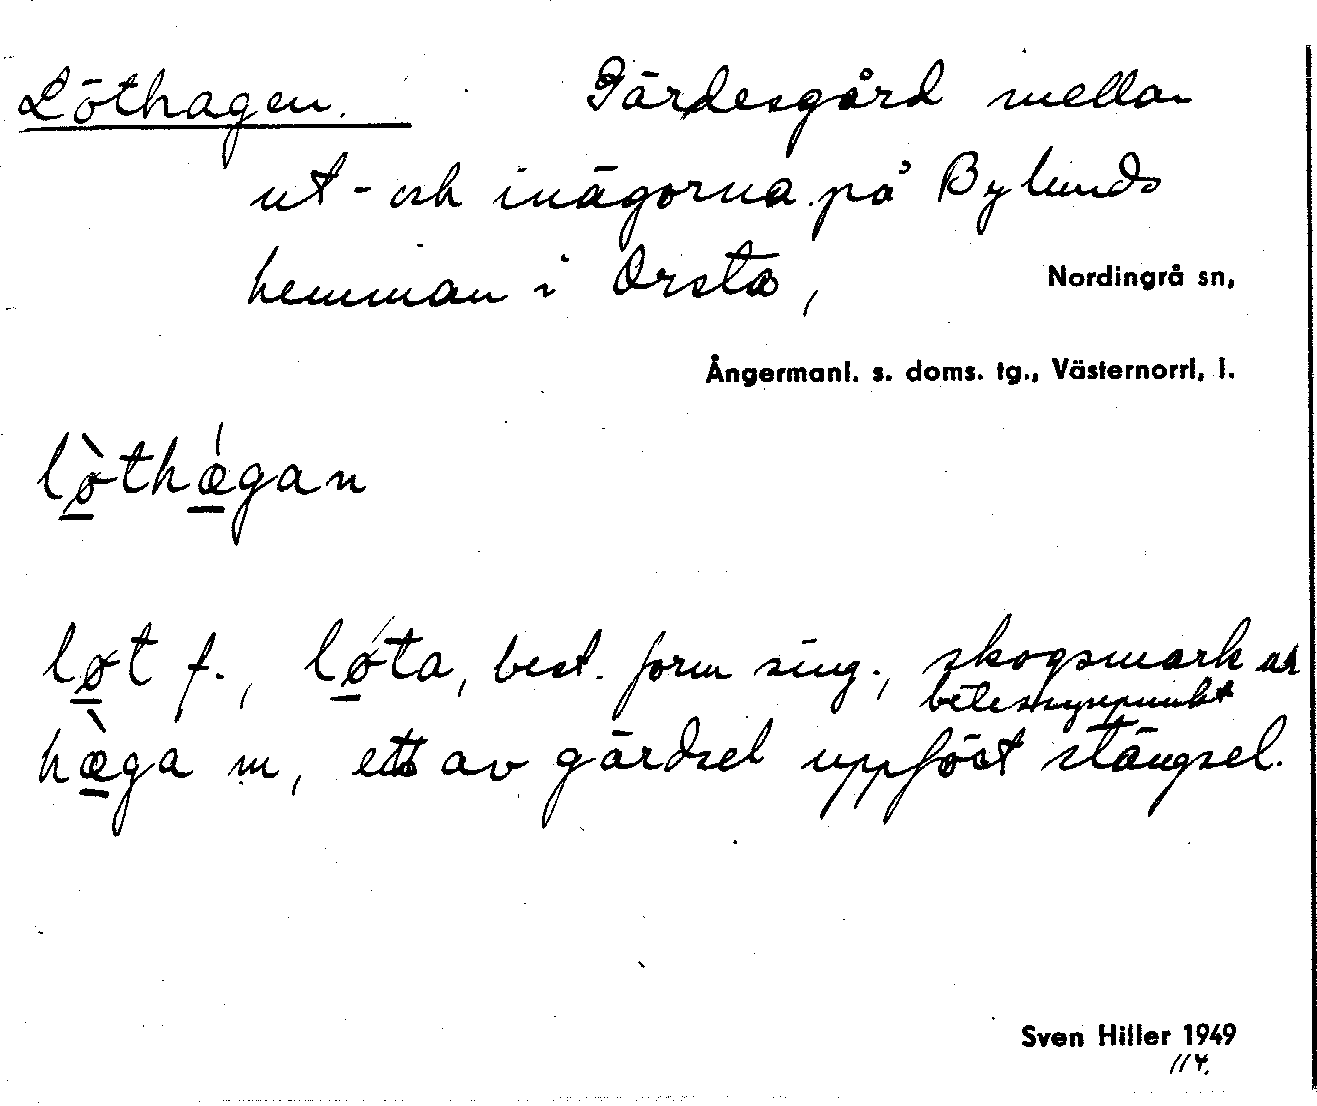 Löthagen. Gärdesgård mellan
ut- och inägorna på Bylunds
hemman i Orsta,
Nordingrå sn,
Ångermanl. s. doms. tg., Västernorrl. l.
lø̲̀thá̲gan
lø̲t f., lǿ̲ta, best. form sing., skogsmark ur
betessynpunkt
hà̲ga m, ett av gärdsel uppfört stängsel.
Sven Hiller 1949